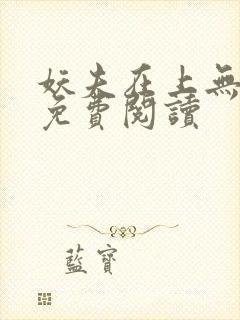 妖夫在上無
免費閱讀
藍寶